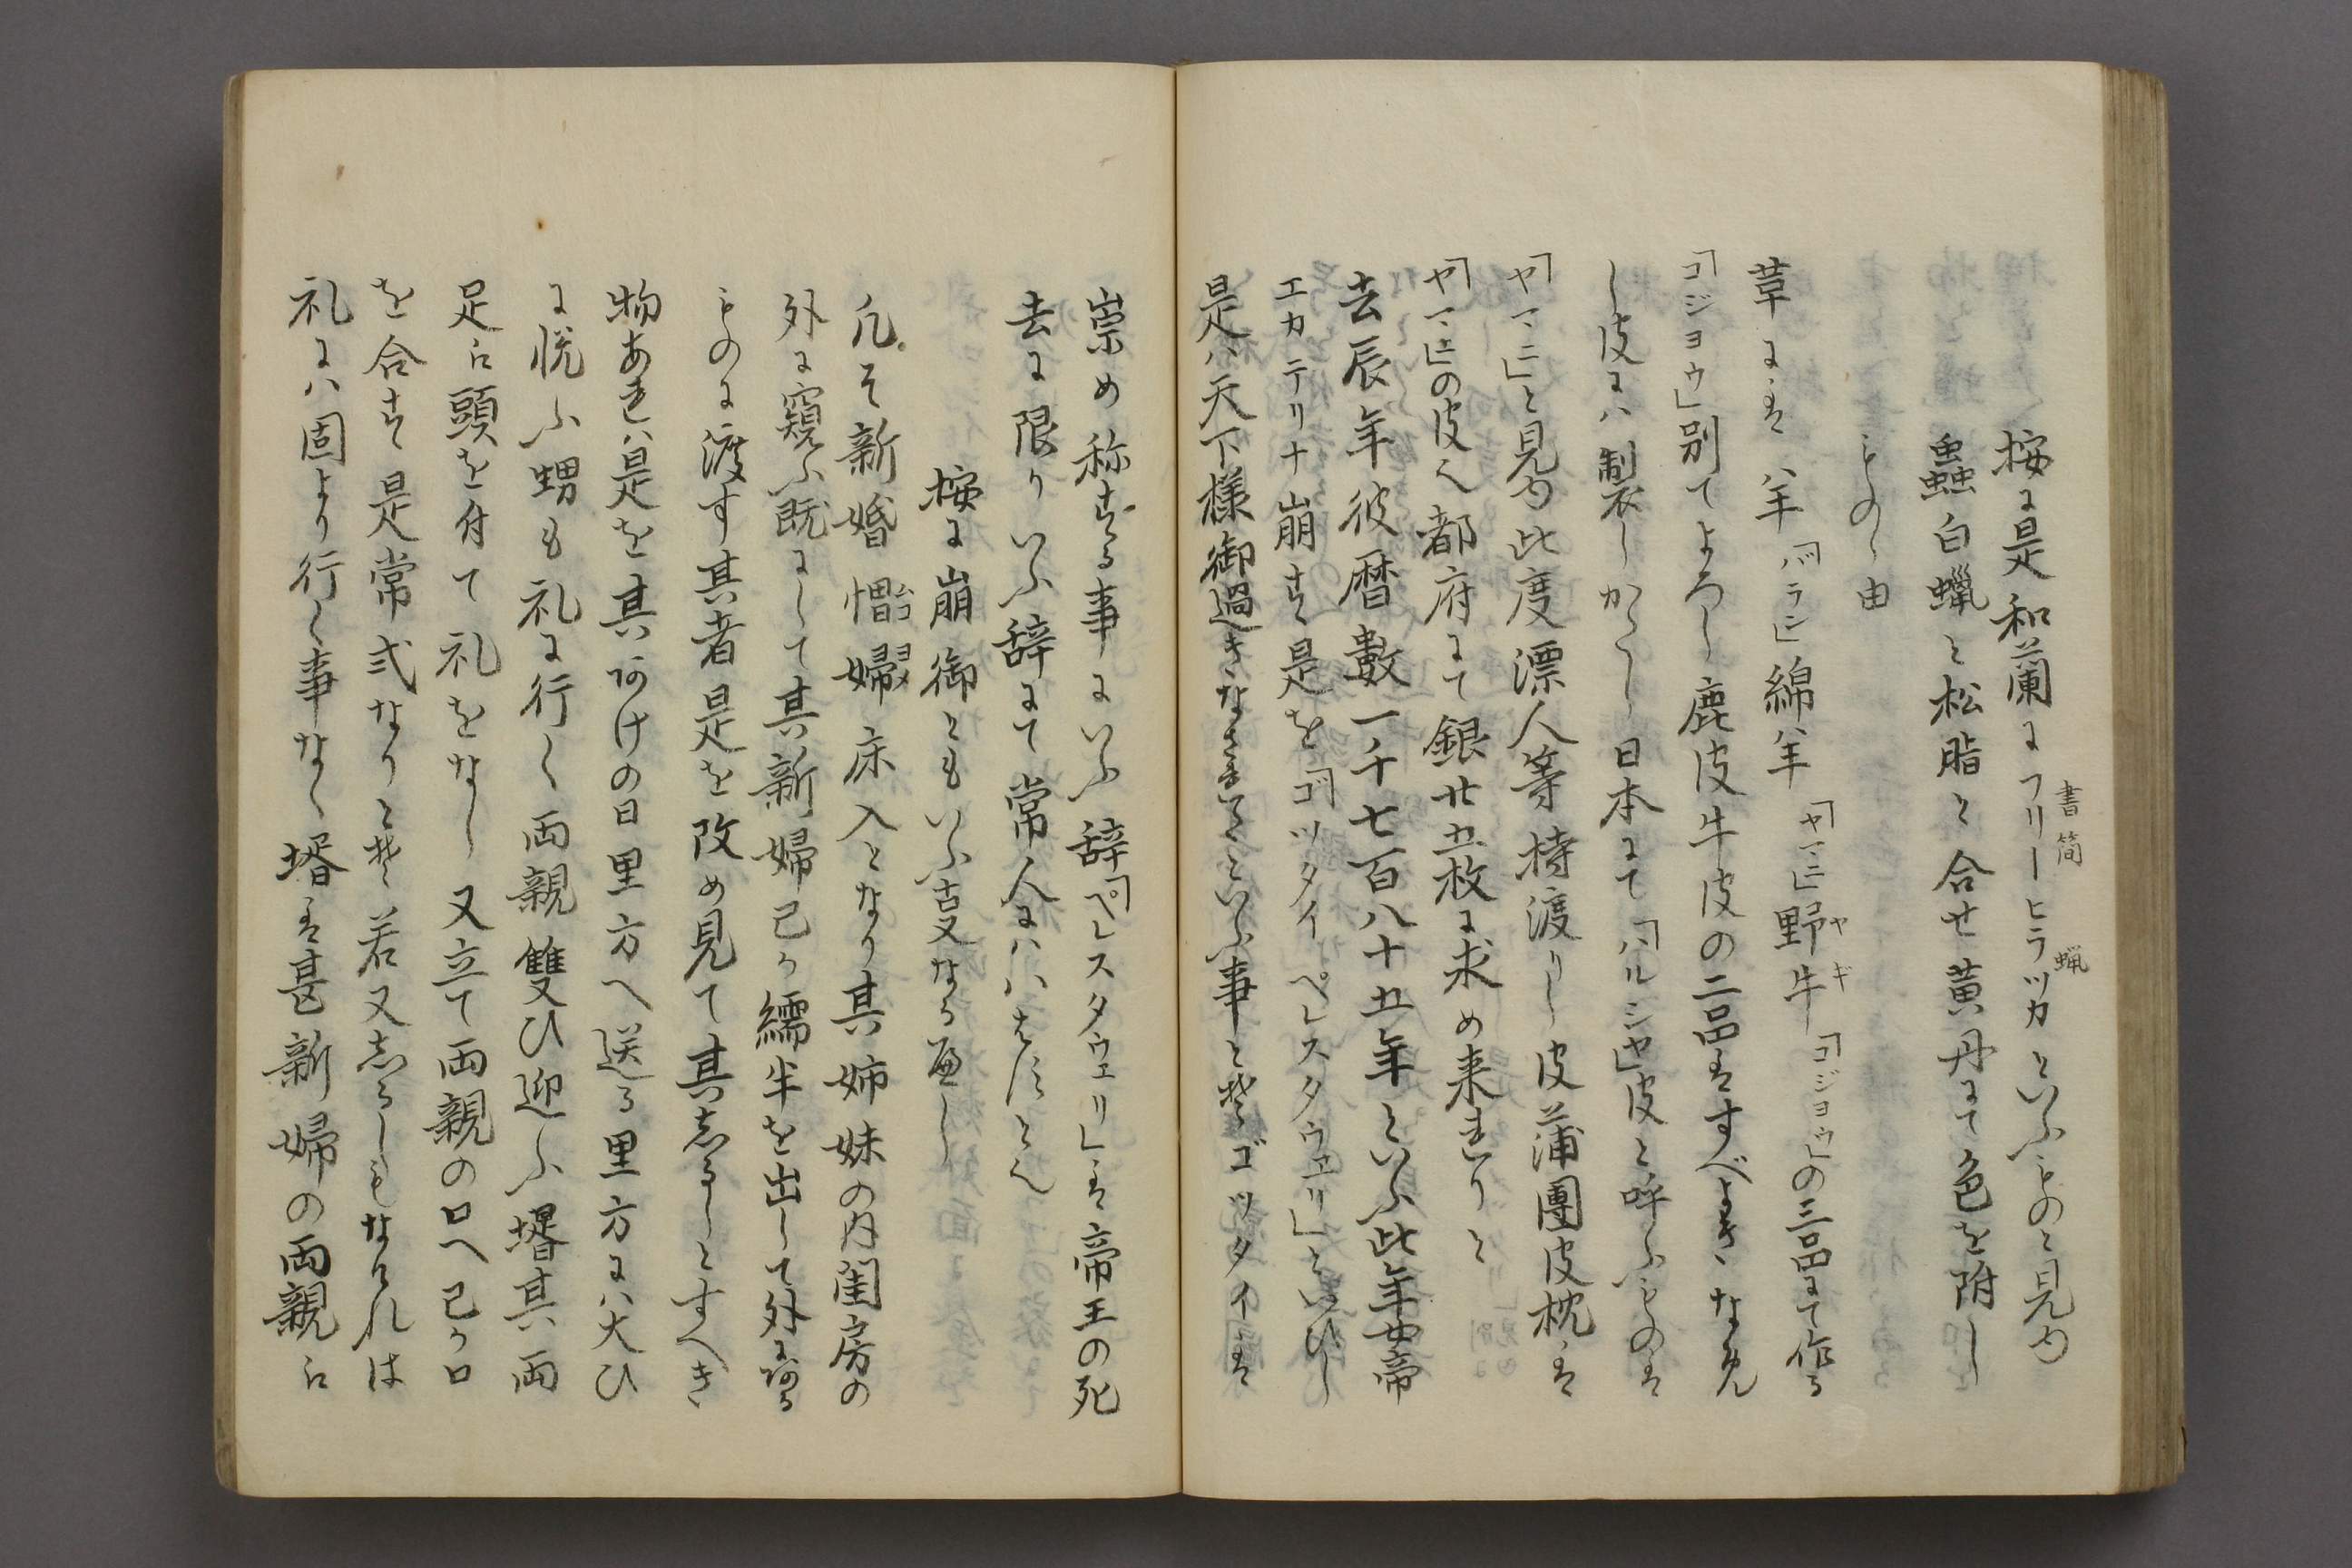 按に是和蘭にフリーヒラツカといふものと見ゆ
書簡
蝋
蟲白蝋と松脂と合せ黄丹にて色を附し
ものゝ由
革には羊「バラン」綿羊「ヤマニ」野牛「コジヨウ」の三品にて作る
ヤギ
「コジヨウ」別てよろし鹿皮牛皮の二品はすべよきなめ
し皮には製しかたし日本にて「ハルシヤ」皮と呼ふものは
「ヤマニ」と見ゆ此度漂人等持渡りし皮蒲團皮枕は
「ヤマニ」の皮也都府にて銀廿五枚に求め来れりと
去辰年彼暦數一千七百八十五年といふ此年女帝
エカテリナ崩す是を「ゴツタイ ペレスタウエリ」といひし
是ハ天下様御過きなされてといふ事とぞゴツタイは
崇め称する事にいふ辞「ペレスタウエリ」は帝王の死
去に限りいふ辞にて常人にハいはすとそ
按に崩御ともいふ古文なるべし
凡そ新婚婚婦床入となり其姉妹の内閨房の
外に窺ふ既にして其新婦己か繻半を出して外に在る
ものに渡す其者是を改め見て其志るしとすへき
物あれハ是を其あけの日里方へ送る里方にハ大ひ
に悦ふ甥も礼に行く両親雙ひ迎ふ壻其両
足に頭を付て礼をなし又立て両親の口へ己か口
を合す是常式なりとぞ若又志るしもなけれは
礼にハ固より行く事なく壻は甚新婦の両親に